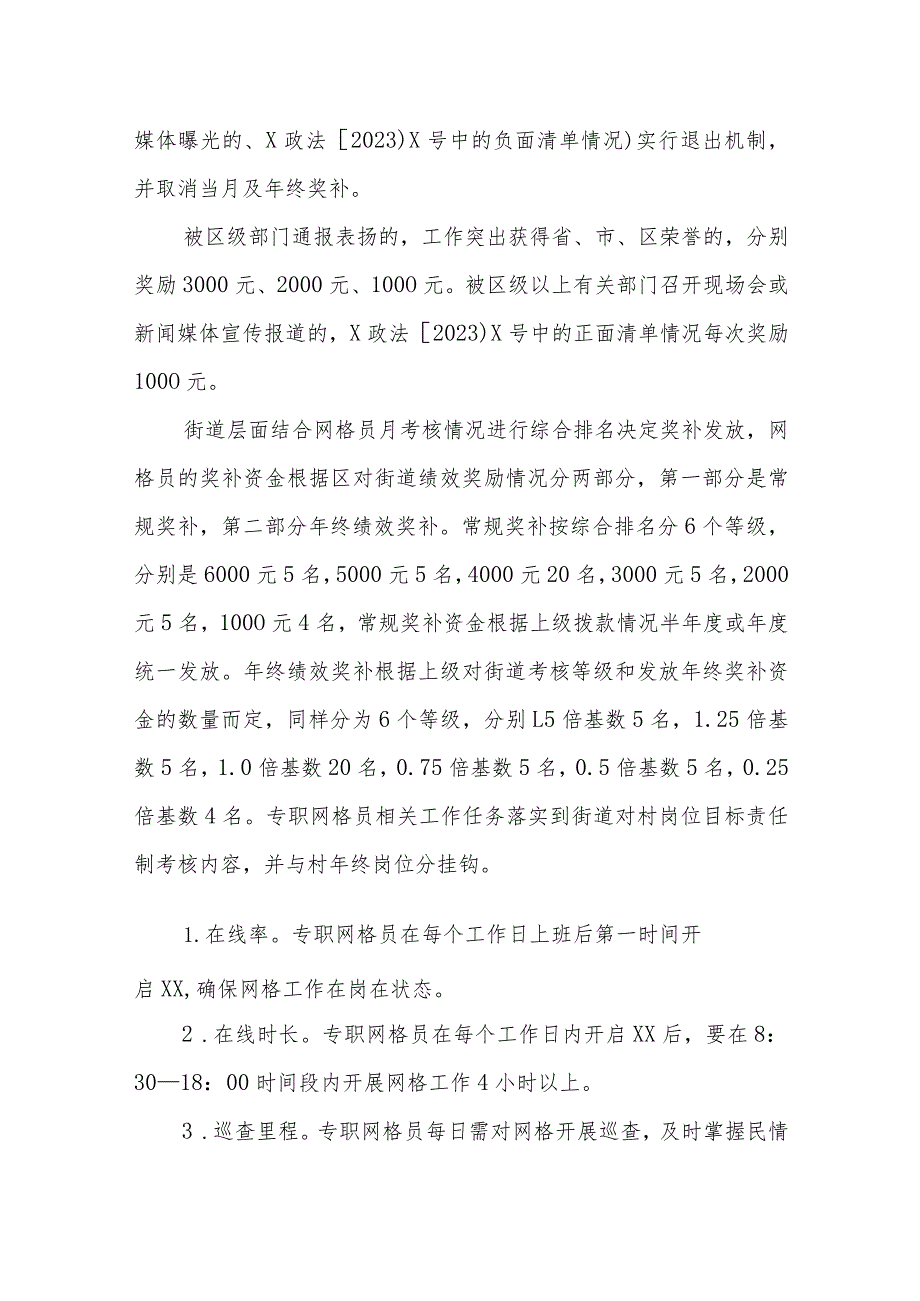 媒体曝光的、X 政法［2023)X 号中的负面清单情况)实行退出机制，
并取消当月及年终奖补。
被区级部门通报表扬的，工作突出获得省、市、区荣誉的，分别
奖励 3000 元、2000 元、100O 元。被区级以上有关部门召开现场会或
新闻媒体宣传报道的，X 政法［2023)X 号中的正面清单情况每次奖励
100O 元。
街道层面结合网格员月考核情况进行综合排名决定奖补发放，网
格员的奖补资金根据区对街道绩效奖励情况分两部分，第一部分是常
规奖补，第二部分年终绩效奖补。常规奖补按综合排名分 6 个等级，
分别是 6000 元 5 名,5000 元 5 名,4000 元 20 名,3000 元 5 名,2000
元 5 名，100O 元 4 名，常规奖补资金根据上级拨款情况半年度或年度
统一发放。年终绩效奖补根据上级对街道考核等级和发放年终奖补资
金的数量而定，同样分为 6 个等级，分别 L5 倍基数 5 名，1.25 倍基
数 5 名,1.0 倍基数 20 名,0.75 倍基数 5 名,0.5 倍基数 5 名,0.25
倍基数 4 名。专职网格员相关工作任务落实到街道对村岗位目标责任
制考核内容，并与村年终岗位分挂钩。
1.在线率。专职网格员在每个工作日上班后第一时间开
启 XX,确保网格工作在岗在状态。
2 .在线时长。专职网格员在每个工作日内开启 XX 后，要在 8：
30—18：00 时间段内开展网格工作 4 小时以上。
3 .巡查里程。专职网格员每日需对网格开展巡查，及时掌握民情